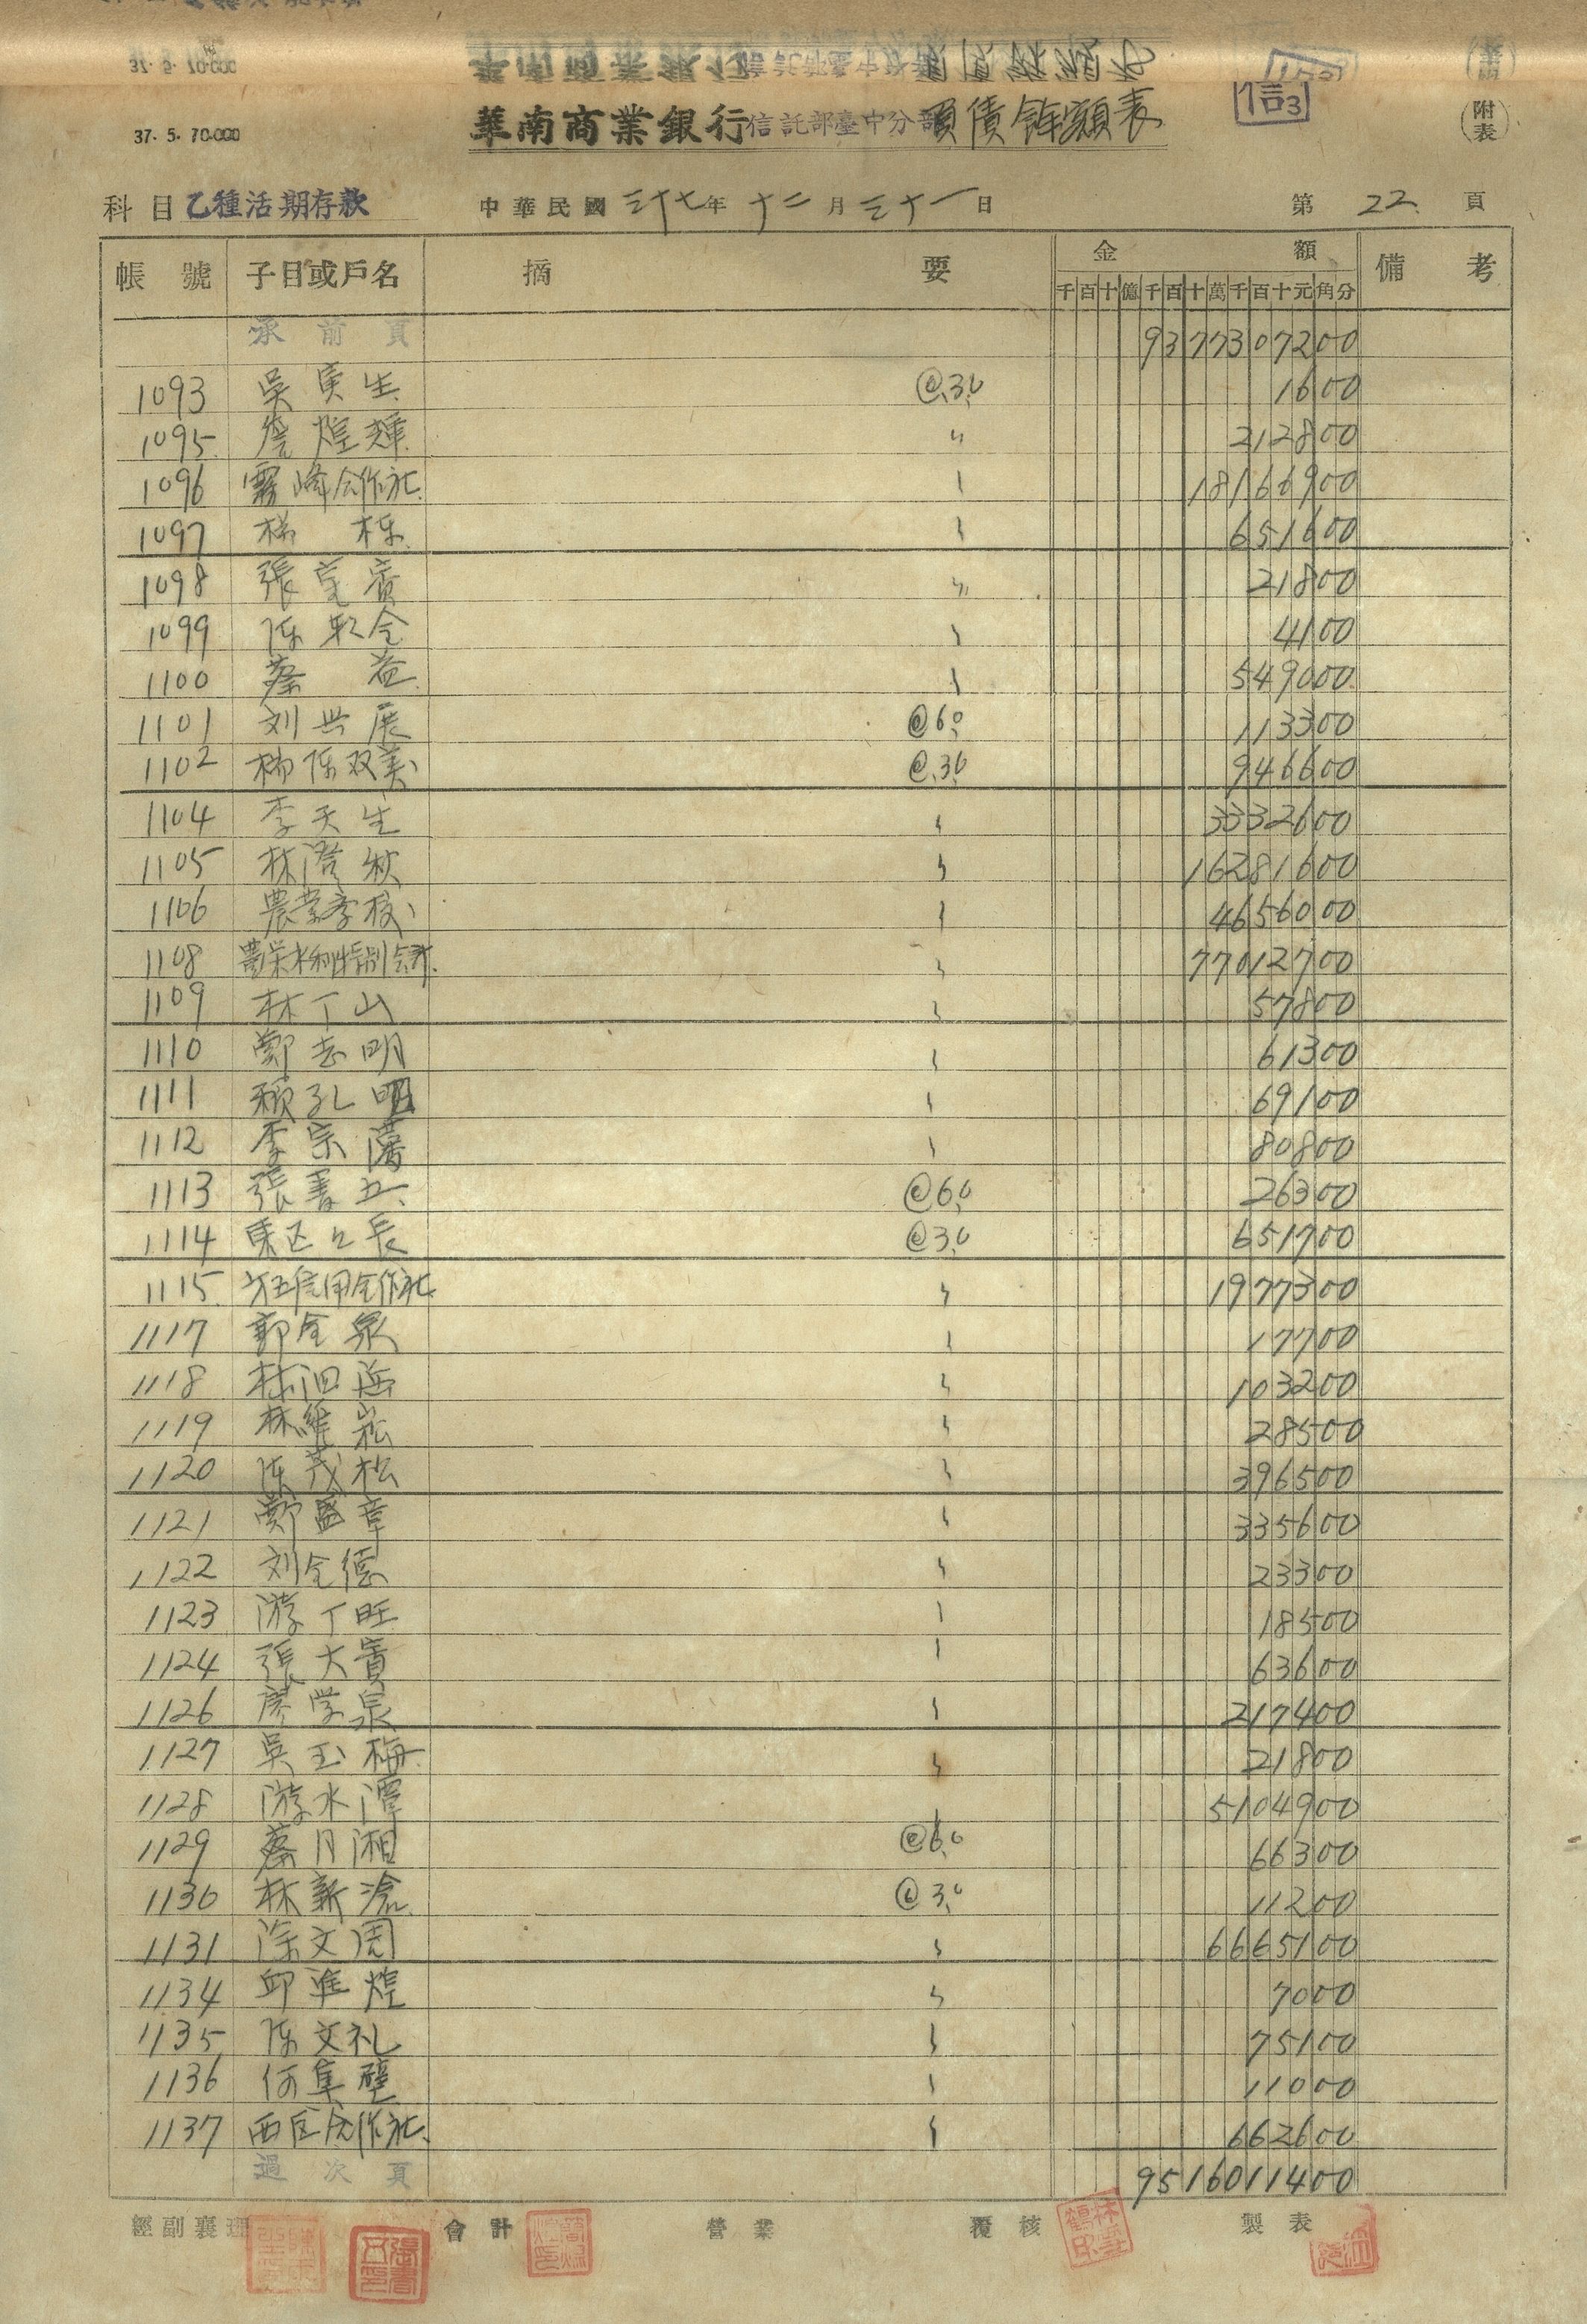 37. 5. 70.000
華南商業銀行信託部臺中分部負債餘額表
信3
(附表)
科目 乙種活期存款 中華民國三十七年十二月三十一日 第22頁
帳號 子目或戶名 摘要 金額 備考
千百十億千百十萬千百十元角分
承前頁 9377307200
1093 吳庚生 @3.0 1600
1095 詹煌輝 〃 212800
1096 霧峰合作社 〃 18166900
1097 楊栎 〃 651600
1098 張寶賓 〃 21800
1099 陳彩金 〃 4100
1100 蔡益 〃 549000
1101 刘世展 @6.0 113300
1102 楊陳双美 @3.0 946600
1104 李天生 〃 3332600
1105 林澄秋 〃 16281600
1106 農業學校 〃 4656000
1108 農業水利特別会計 〃 77012700
1109 林丁山 〃 57800
1110 鄭志明 〃 61300
1111 賴孔明 〃 69100
1112 李宗藩 〃 80800
1113 張書五 @6.0 26300
1114 東区区長 @3.0 651700
1115 第五信用合作社 〃 1977300
1117 郭金泉 〃 17700
1118 林泗海 〃 103200
1119 林維崧 〃 28500
1120 陳茂松 〃 396500
1121 鄭盛章 〃 335600
1122 刘全德 〃 23300
1123 游丁旺 〃 18500
1124 張大賓 〃 63600
1126 廖学泉 〃 217400
1127 吳玉梅 〃 21800
1128 游水潭 〃 5104900
1129 蔡月湘 @6.0 66300
1130 林新滄 @3.0 11200
1131 涂文周 〃 6665100
1134 邱進煌 〃 7000
1135 陳文礼 〃 75100
1136 何隼璧 〃 11000
1137 西区合作社 〃 662600
過次頁 9516011400
經副襄理 會計 營業 覆核 製表